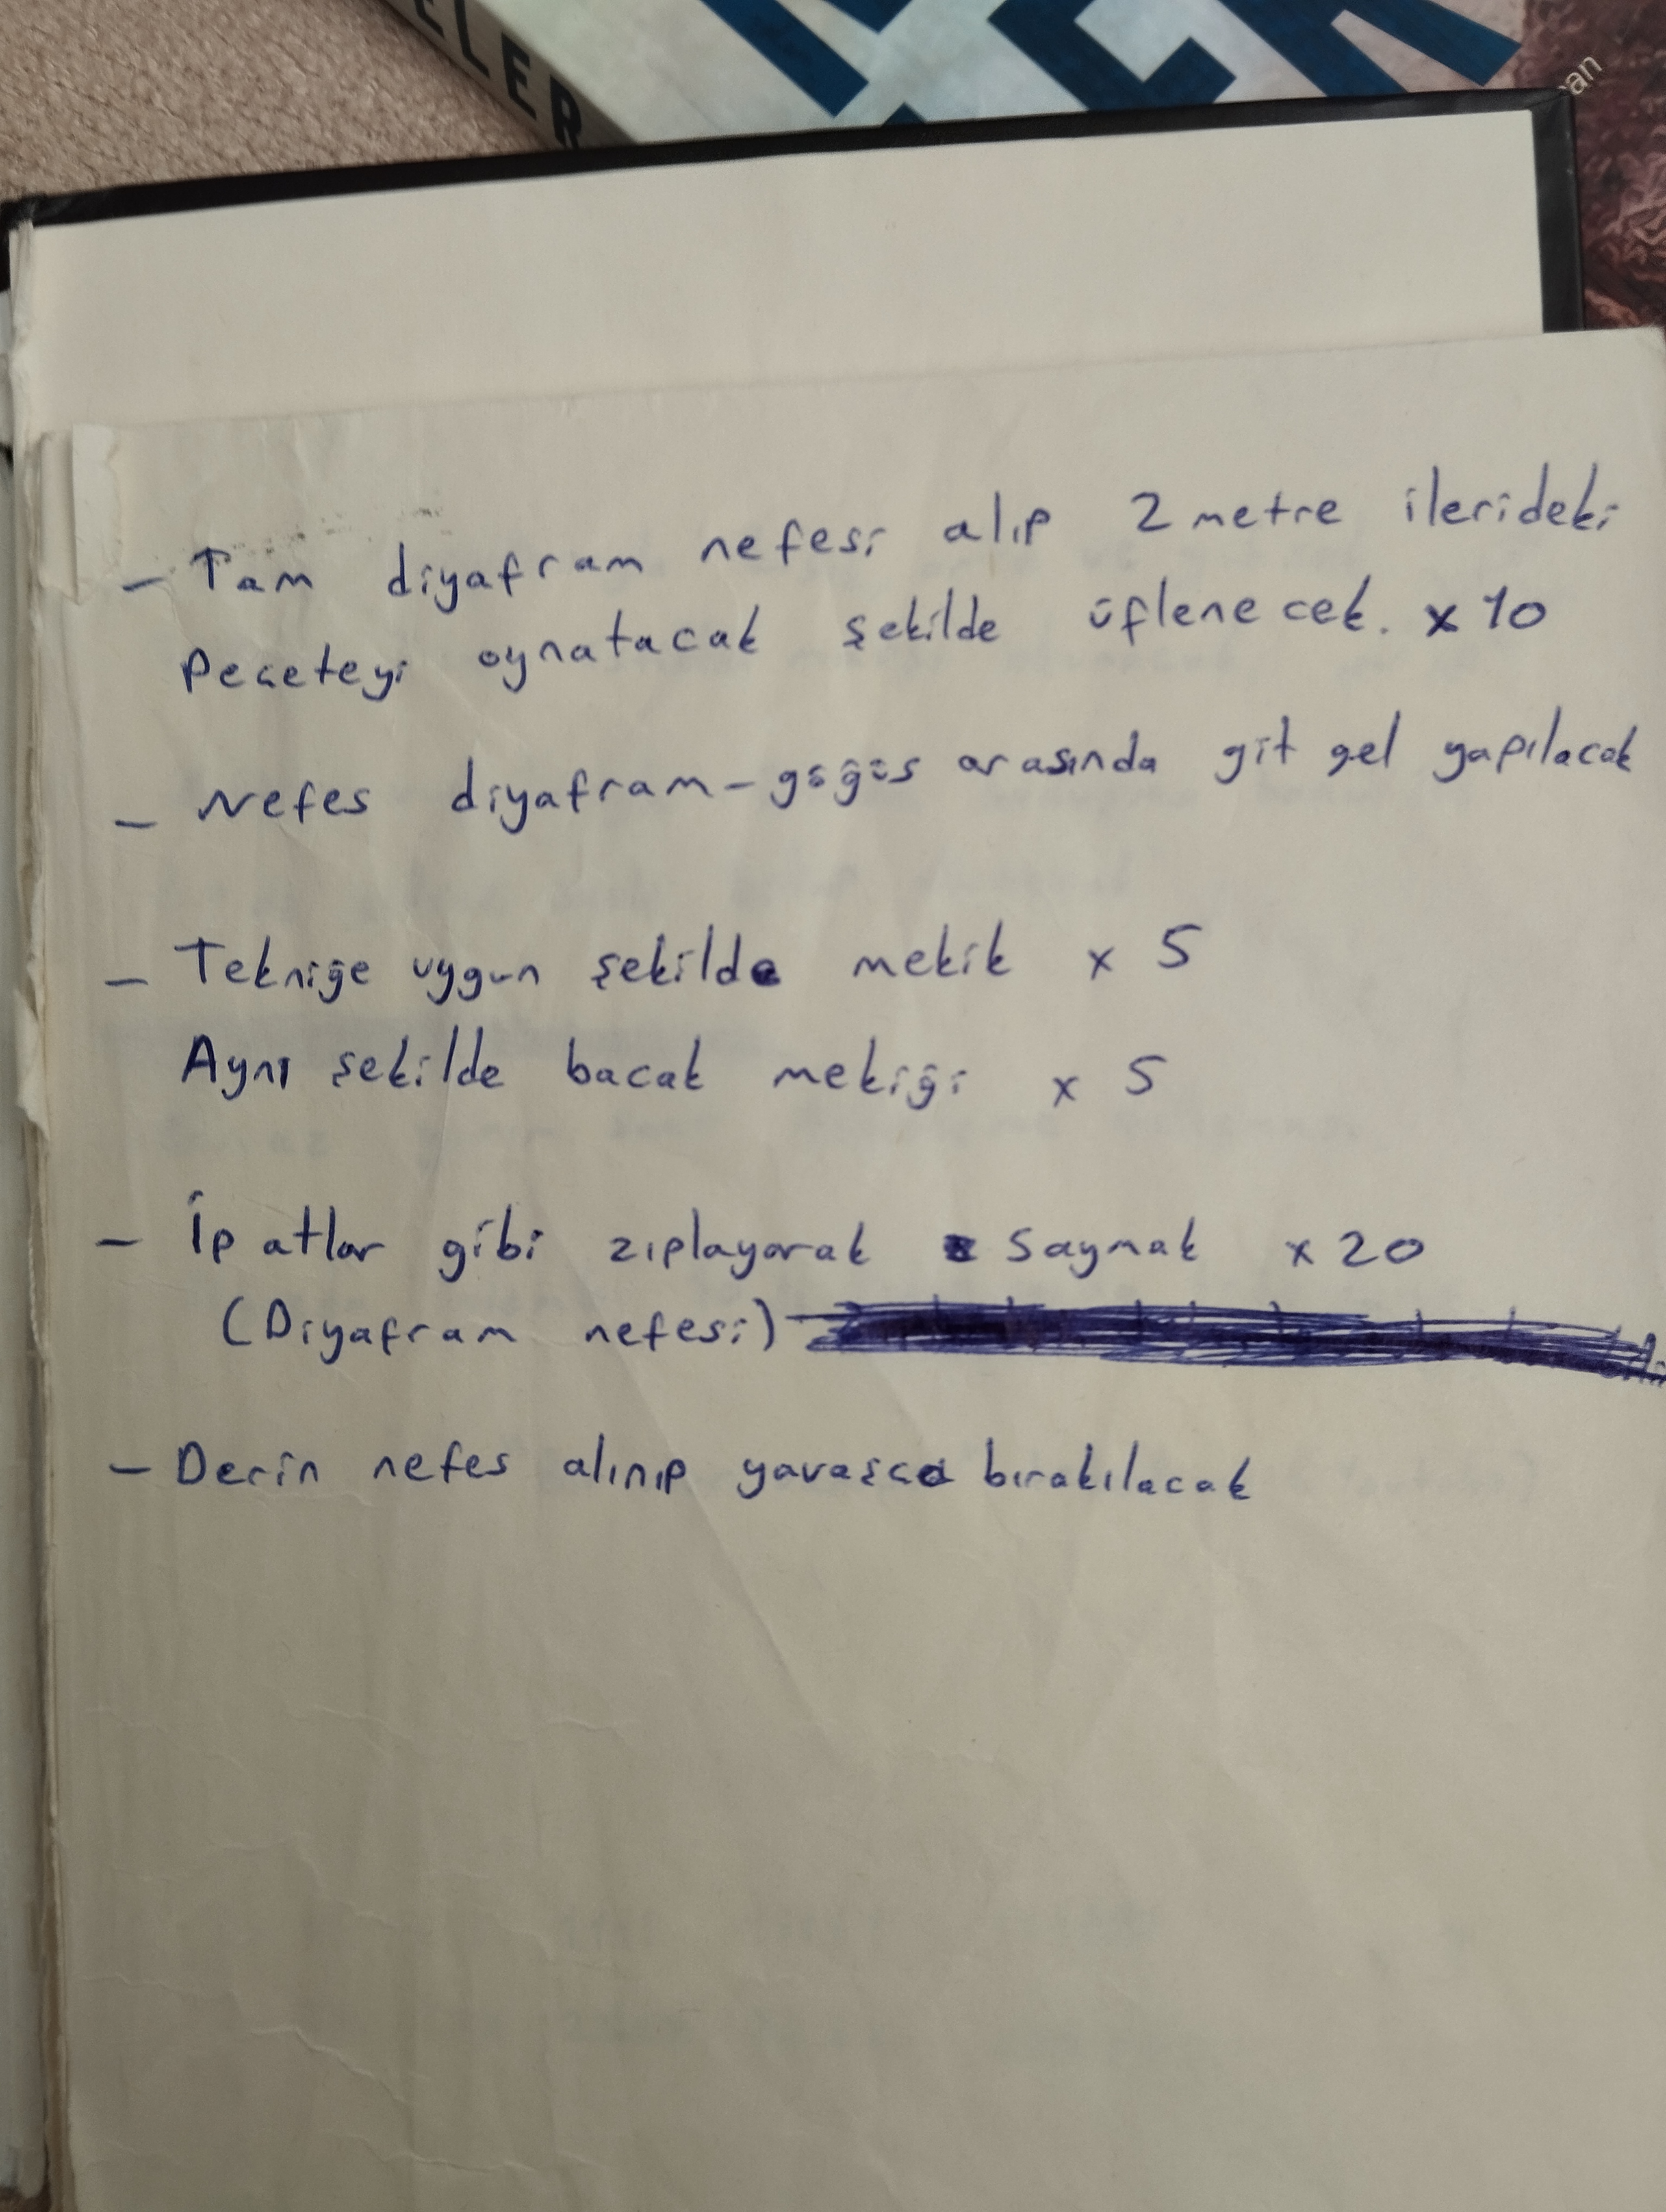 ELER
an
- Tam diyafram nefesi alıp 2 metre ilerideki
Peçeteyi oynatacak şekilde üflenecek. x 10
- Nefes diyafram-göğüs arasında git gel yapılacak
- Tekniğe uygun şekilde mekik x 5
Aynı şekilde bacak mekiği x 5
- İp atlar gibi zıplayarak saymak x 20
(Diyafram nefesi)
- Derin nefes alınıp yavaşca bırakılacak